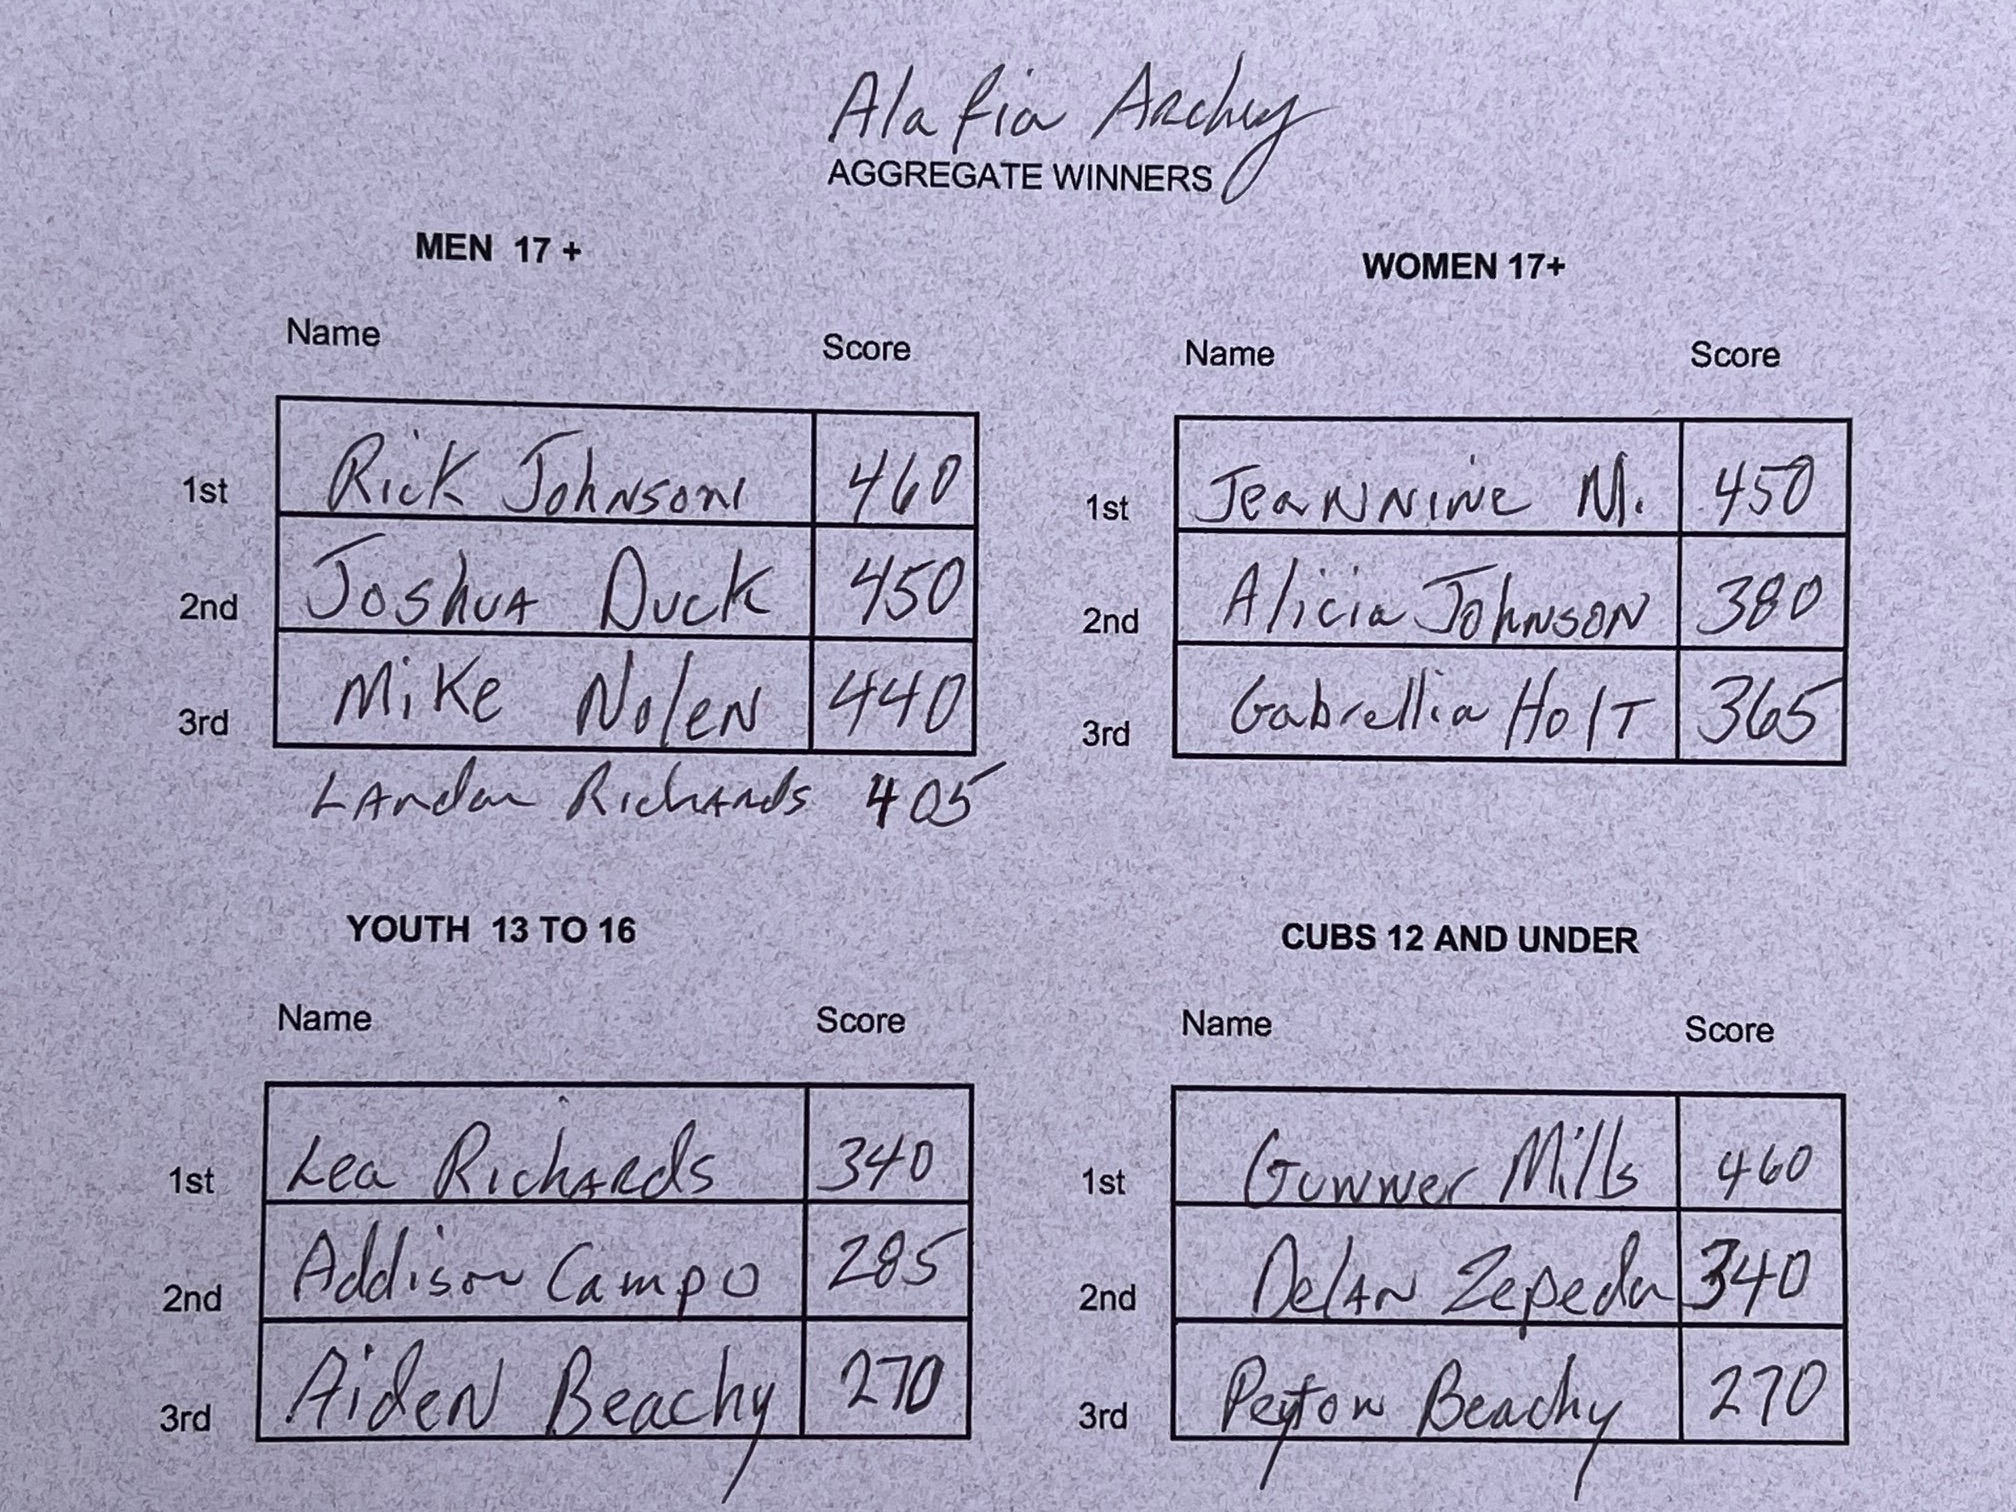 Alafia Archery
AGGREGATE WINNERS
MEN 17 +
Name Score
1st Rick Johnson 460
2nd Joshua Duck 450
3rd Mike Nolen 440
Landon Richards 405
WOMEN 17+
Name Score
1st Jeannine M. 450
2nd Alicia Johnson 380
3rd Gabrellia Holt 365
YOUTH 13 TO 16
Name Score
1st Lea Richards 340
2nd Addison Campo 285
3rd Aiden Beachy 270
CUBS 12 AND UNDER
Name Score
1st Gunner Mills 460
2nd Delan Zepeda 340
3rd Peyton Beachy 270